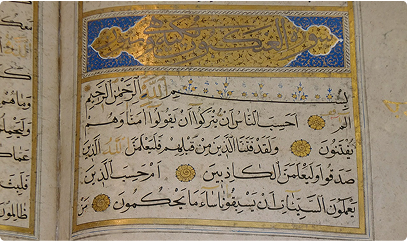 العنكبوت
بسم الله الرحمن الرحيم
الم احسب الناس ان يتركوا ان يقولوا امنا وهم لا
يفتنون ولقد فتنا الذين من قبلهم فليعلمن الله الذين
صدقوا وليعلمن الكاذبين ام حسب الذين
يعملون السيئات ان يسبقونا ساء ما يحكمون من
وما هم
ظالمون